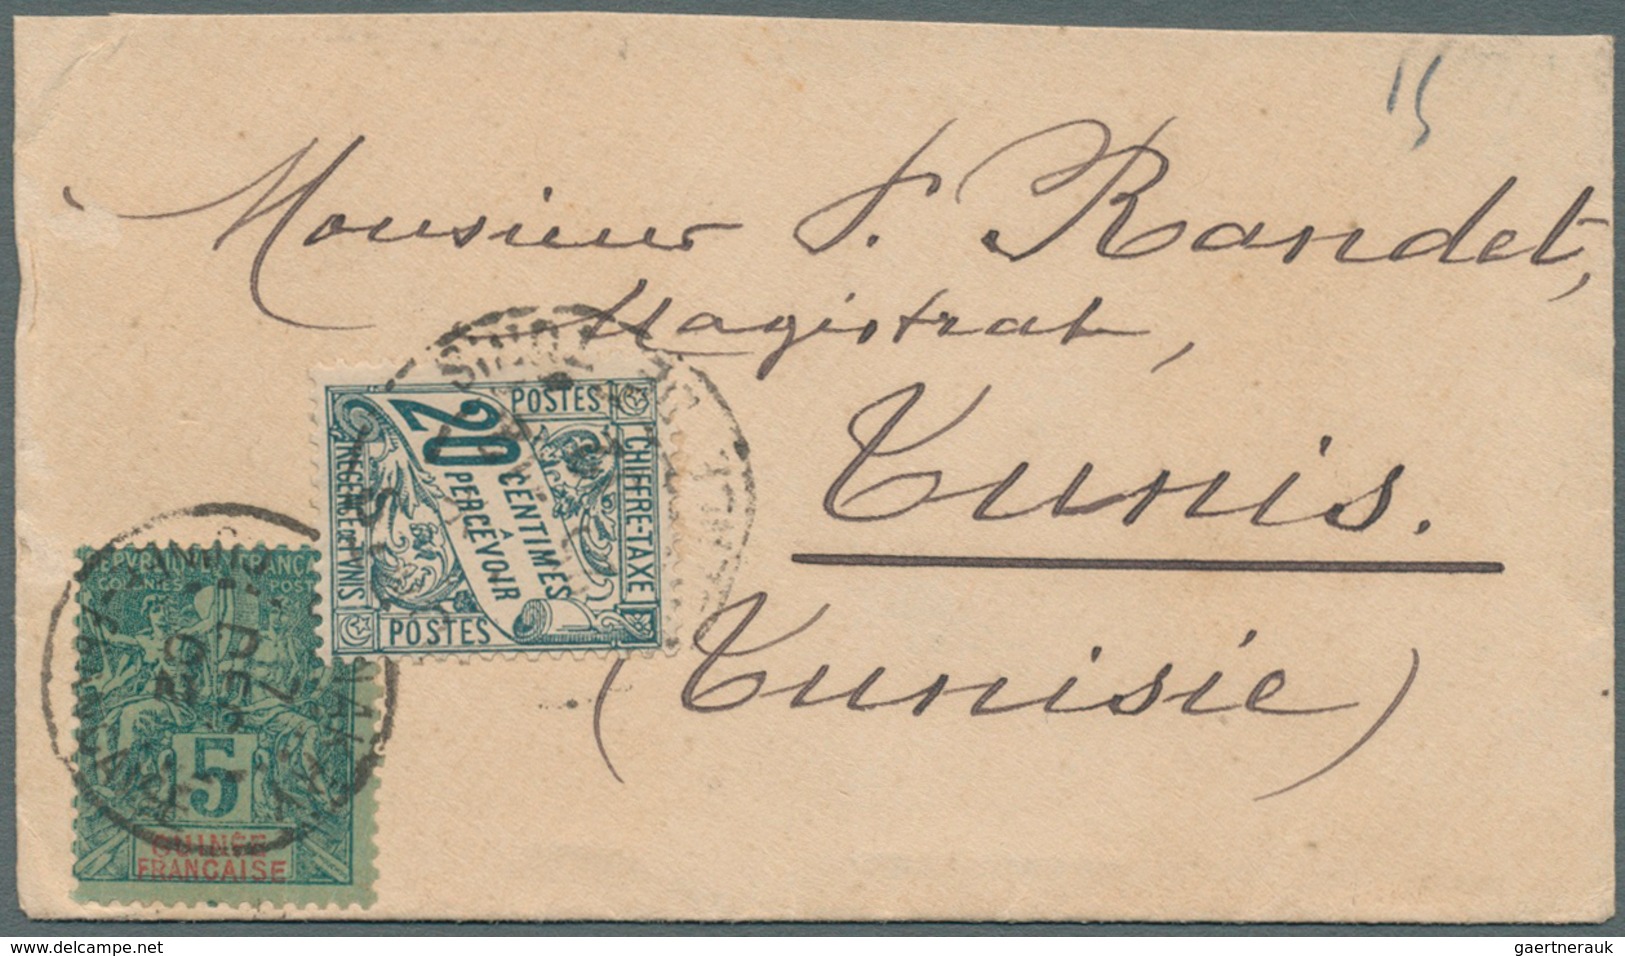 15
Monsieur F. Randet,
Magistrat,
Tunis.
(Tunisie)
POSTES
CHIFFRE-TAXE
20
CENTIMES
A
PERCEVOIR
REGENCE DE TUNIS
POSTES
TUNIS
COLONIES POSTES
5
GUINÉE
FRANÇAISE
delcampe.net
gaertnerauk